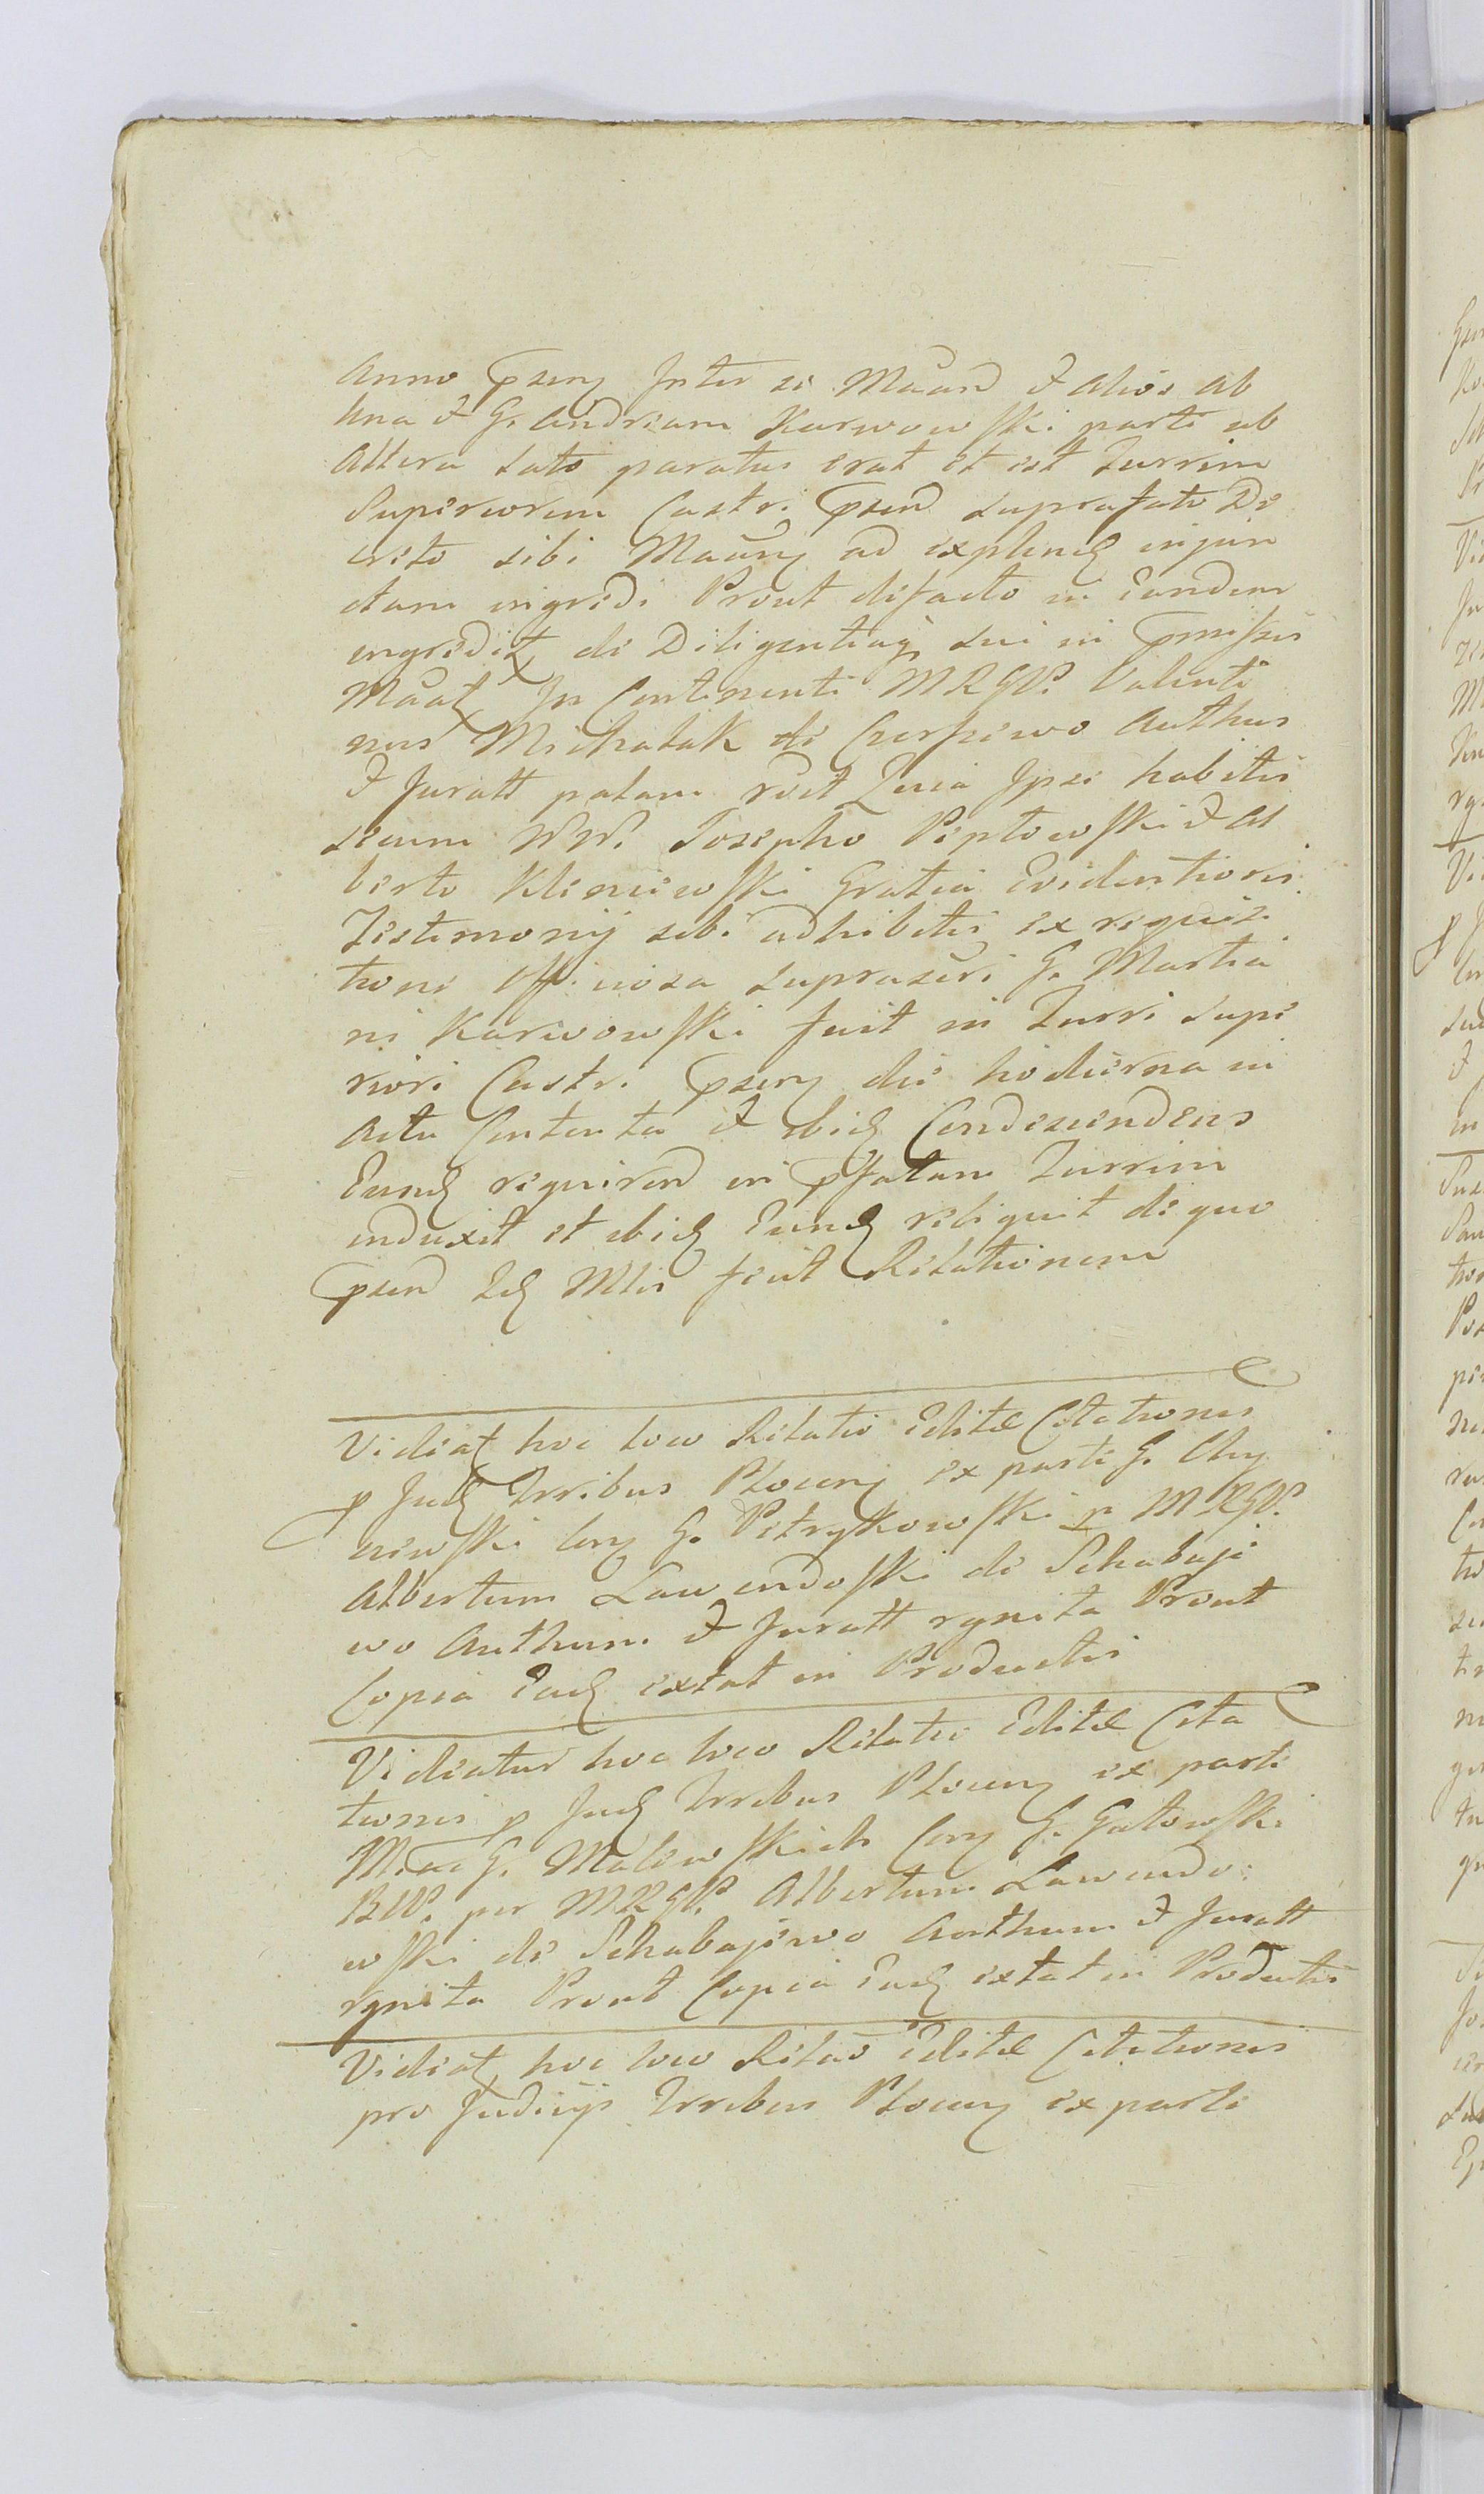 Anno pseny Inter se Maand & alios ab
Una & G. Andream Karwowski parte ab
Altera lato paratus erat et est Turrim
Superiorem Castri psend suprafato De
creto sibi Maany ad explend injun
ctam ingredi Prout defacto in Eandem
ingredit de Diligentiaq sui in pmissis
Maat In Continenti MRGP. Valenti
nus Michalak de Cierpiewo Authus
& Juratt palam rcit Quia Ipse habitis
secum NN. Josepho Peplowski & Al
berto Kleniewski Gratia Evidentioris
Testimonij sibi adhibitis ex requisi
tione Officiosa suprascri G. Martia
ni Karwowski fuit in Turri Supe
riori Castri pseny die hodierna in
Actu Contenta & ibid Condescendens
Eund requirend in pfatam Turrim
induxit et ibid Eund reliquit de quo
psend Id Mlis fecit Relationem
Videat hoc loco Relatio Editæ Citationis
p Jud Trribus Plocen ex parte G. Chy
niewski Con G. Petrykowski p MRGP.
Albertum Lawendoski de Schabaje
wo Authum & Juratt rgnita Prout
Copia Ejud extat in Productis
Videatur hoc loco Relatio Editæ Cita
tionis p Jud Trribus Plocen ex parte
G. Malewskich Con G. Gatowski
BW. per MRGP. Albertum Lawendo:
wski de Schabajewo Authum & Juratt
rgnita Prout Copia Ejud extat in Productis
Videat hoc loco Relao Editæ Citationis
pro Judicijs Trribus Plocen ex parte